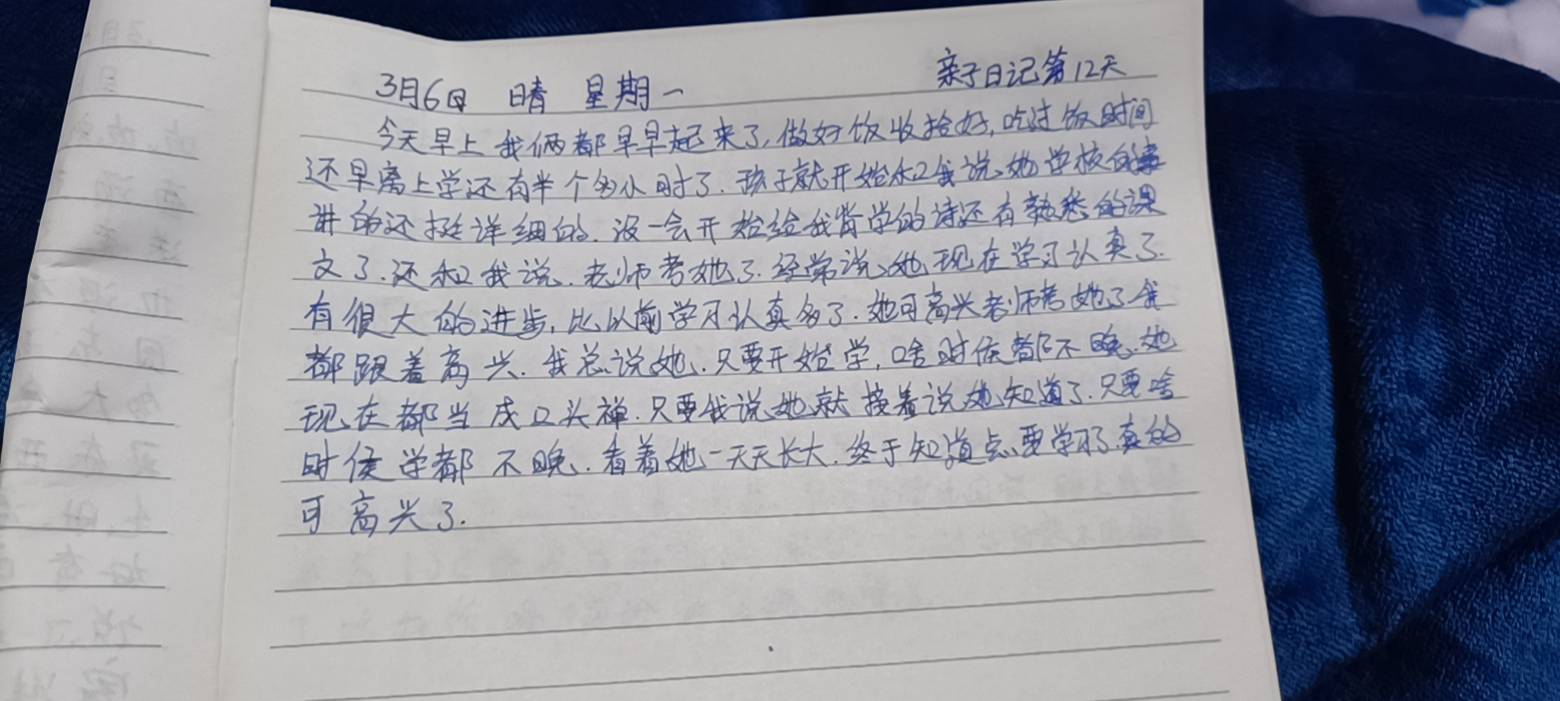 3月6日 晴 星期一 亲子日记第12天
今天早上我俩都早早起来了,做好饭收拾好,吃过饭时间
还早离上学还有半个多小时了.孩子就开始和我说、她学校的事
讲的还挺详细的.没一会开始给我背学的诗还有熟悉的课
文了.还和我说.老师考她了.经常说、她现在学习认真了.
有很大的进步,比以前学习认真多了.她可高兴老师考她了我
都跟着高兴.我总说她.只要开始学,啥时候都不晚.她
现在都当成口头禅.只要我说她就接着说她知道了.只要啥
时候学都不晚.看着她一天天长大.终于知道点要学习了.真的
可高兴了.